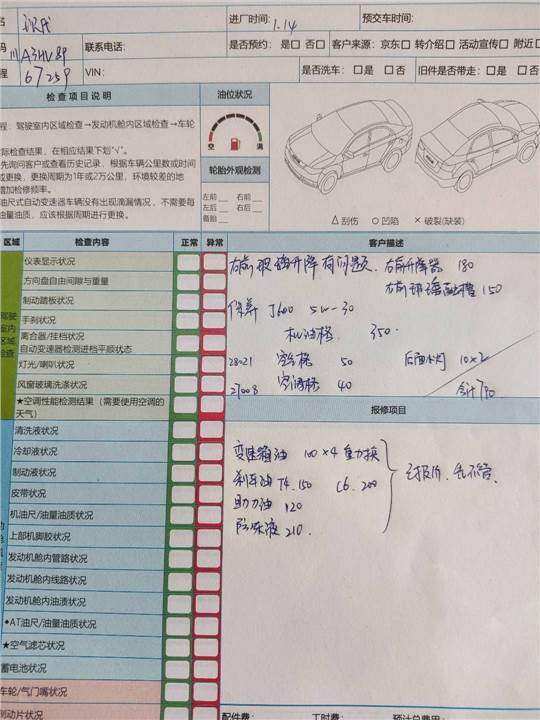 名 现代 进厂时间: 1.14 预交车时间:
码 川A3HV89 联系电话: 是否预约: 是 否 客户来源: 京东 转介绍 活动宣传 附近
程 67259 VIN: 是否洗车: 是 否 旧件是否带走: 是 否
检查项目说明 油位状况
程: 驾驶室内区域检查→发动机舱内区域检查→车轮
空 满
际检查结果, 在相应结果下划“√”。
先询问客户或查看历史记录, 根据车辆公里数或时间
或更换, 更换周期为1年或2万公里, 环境较差的地
增加检修频率。
轮胎外观检测
油尺式自动变速器车辆没有出现滴漏情况, 不需要每
油量油质, 应该根据周期进行更换。
左前 右前
左后 右后
备胎
△ 刮伤 ○ 凹陷 × 破裂(缺装)
区域 检查内容 正常 异常 客户描述
驾驶室内区域检查
仪表显示状况
方向盘自由间隙与重量
制动踏板状况
手刹状况
离合器/挂档状况
自动变速器检测进档平顺状态
灯光/喇叭状况
风窗玻璃洗涤状况
★空调性能检测结果 (需要使用空调的天气)
右前玻璃升降有问题 右前升降器 180
右前玻璃 150
保养 J600 5W-30
机油格 350.
28021 空气格 50 后 10×2
27008 空调格 40 合计790
报修项目
清洗液状况
冷却液状况
制动液状况
皮带状况
机油尺/油量油质状况
上部机脚胶状况
发动机舱内管路状况
发动机舱内线路状况
发动机舱内油渍状况
•AT油尺/油量油质状况
★空气滤芯状况
蓄电池状况
车轮/气门嘴状况
制动片状况
变速箱油 100×4 重力换
刹车油 T4.150 L6.200
助力油 120
防冻液 210.
已报价.
配件费: 工时费: 预计总费用: